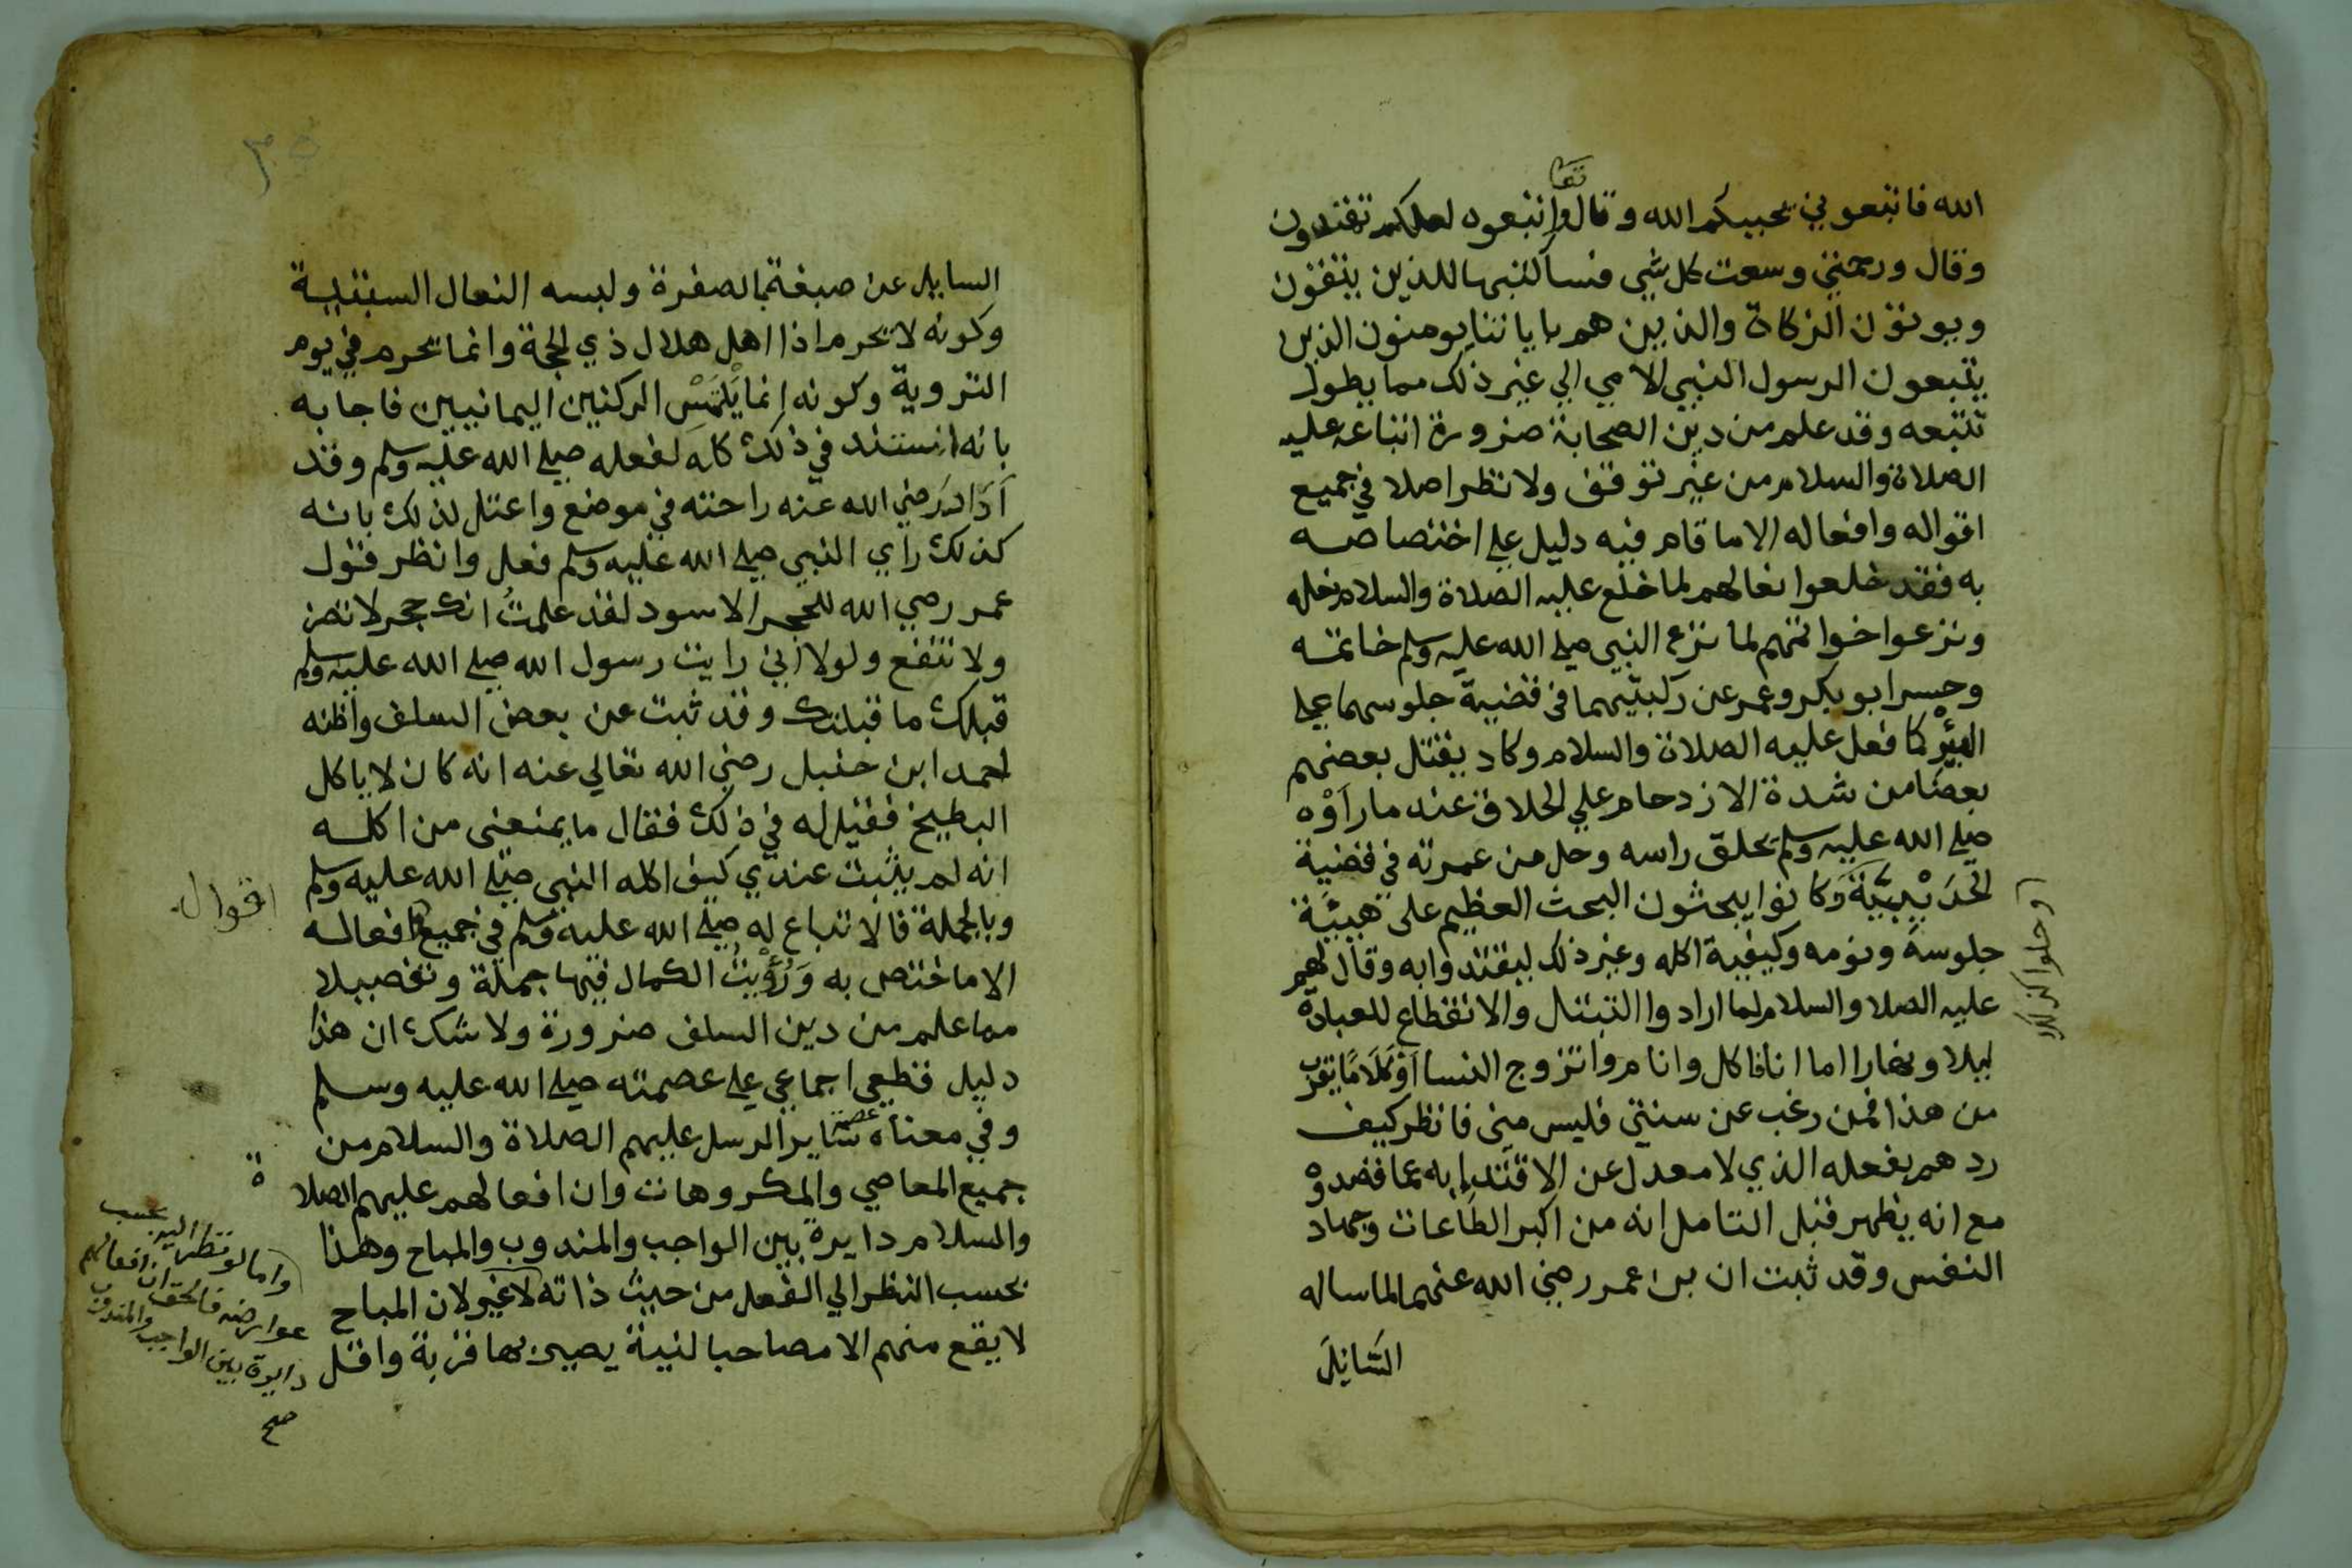 تعا
الله فاتبعوني يحببكم الله وقال واتبعوه لعلكم تهتدون
وقال ورحمتي وسعت كل شي فسأكتبها للذين يتقون
ويوتون الزكاة والذين هم باياتنا يومنون الذين
يتبعون الرسول النبي الامي الي غير ذلك مما يطول
تتبعه وقد علم من دين الصحابة ضرورة اتباعه عليه
الصلاة والسلام من غير توقف ولا نظر اصلا في جميع
اقواله وافعاله الا ما قام فيه دليل علي اختصاصه
به فقد خلعوا نعالهم لما خلع عليه الصلاة والسلام نعله
ونزعوا خواتمهم لما نزع النبي صلي الله عليه وسلم خاتمه
وحسر ابو بكر وعمر عن ركبتيهما في قضية جلوسهما علي
البئر كما فعل عليه الصلاة والسلام وكاد يقتل بعضهم
بعضا من شدة الازدحام علي الحلاق عند ما رأوه
صلي الله عليه وسلم يحلق راسه وحل من عمرته في قضية
الحديبية وكانوا يبحثون البحث العظيم على هيئة
جلوسه ونومه وكيفية اكله وغير ذلك ليقتدوا به وقال لهم
عليه الصلا والسلام لما ارادوا التبتل والانقطاع للعبادة
ليلا ونهارا اما انا فاكل وانام واتزوج النسا او كلاما يقرب
من هذا فمن رغب عن سنتي فليس مني فانظر كيف
ردهم بفعله الذي لا معدل عن الاقتداء به عما قصدوه
مع انه يظهر قبل التامل انه من اكبر الطاعات وجهاد
النفس وقد ثبت ان بن عمر رضي الله عنهما لما ساله
السائل
السايل عن صبغته بالصفرة ولبسه النعال السبتية
وكونه لا يحرم اذا اهل هلال ذي الحجة وانما يحرم في يوم
التروية وكونه انما يلتمس الركنين اليمانيين فاجابه
بانه استند في ذلك كله لفعله صلي الله عليه وسلم وقد
أدار رضي الله عنه راحته في موضع واعتل لذلك بانه
كذلك راي النبي صلي الله عليه وسلم فعل وانظر قول
عمر رضي الله للحجر الاسود لقد علمتُ انك حجر لا تضر
ولا تنفع ولولا اني رايت رسول الله صلي الله عليه وسلم
قبلك ما قبلتك وقد ثبت عن بعض السلف واظنه
احمد ابن حنبل رضي الله تعالي عنه انه كان لا ياكل
البطيخ فقيل له في ذلك فقال ما يمنعني من اكله
انه لم يثبت عندي كيف اكله النبي صلي الله عليه وسلم
وبالجملة فالاتباع له صلي الله عليه وسلم في جميع افعاله
اقوال
الا ما اختص به ورؤيت الكمال فيها جملة وتفصيلا
مما علم من دين السلف ضرورة ولا شك ان هذا
دليل قطعي اجماعي علي عصمته صلي الله عليه وسلم
وفي معناه عصمة ساير الرسل عليهم الصلاة والسلام من
جميع المعاصي والمكروهات وان افعالهم عليهم الصلا
ة
والسلام دايرة بين الواجب والمندوب والمباح وهذا
بحسب النظر الي الفعل من حيث ذاته لا غير لان المباح
لا يقع منهم الا مصاحبا لنية يصير بها قربة واقل
واما لو نظر اليه بحسب
عوارضه فالحق ان افعالهم
دايرة بين الواجب والمندوب
صح